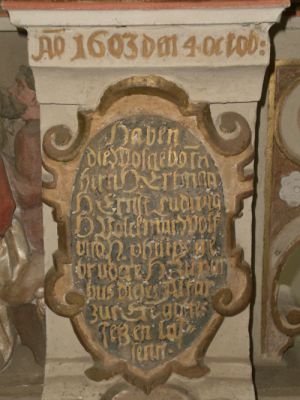 Aō 1603 den 4 octob:
Haben
die Wolgeborn
hern H Ertman
H Ernst Ludwig
H Volckmar Wolf
und H philips ge
bruder H zu
bus diges Altar
zur Ere gottes
setzen las
senn